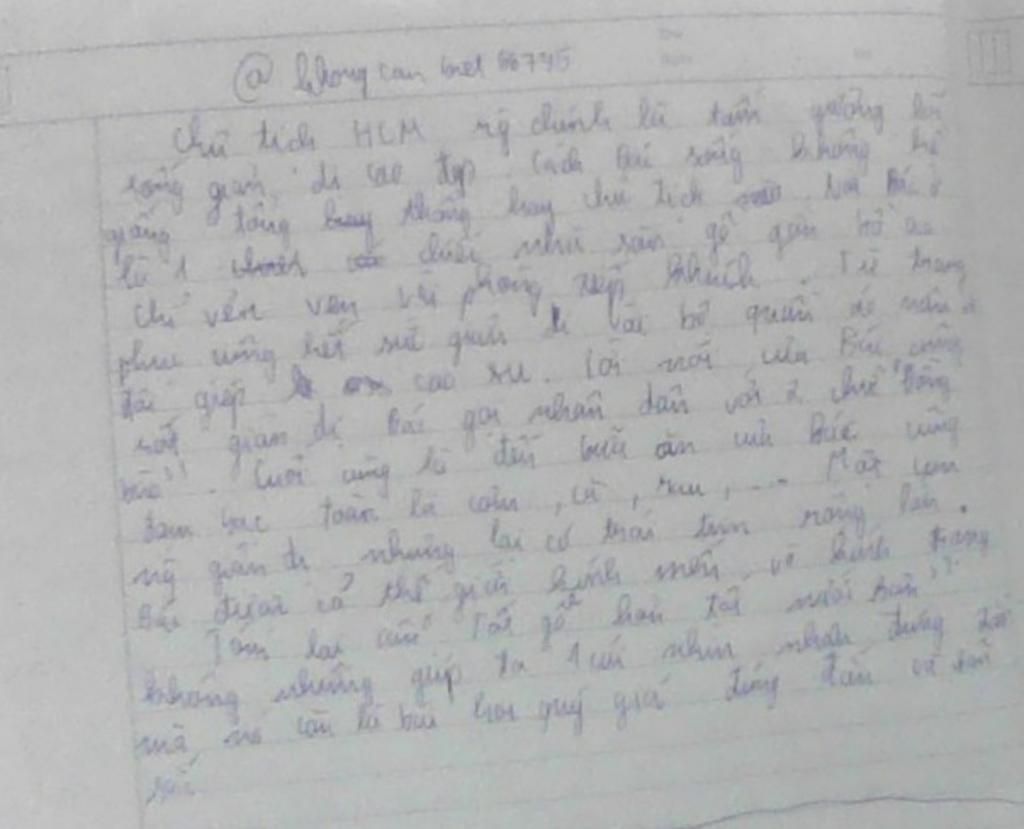 @ khongcanbiet 86745
Chủ tịch HCM ng chính là tấm gương lối
sống giản dị cao đẹp. Cách Bác sống không hề
giống tổng thống hay chủ tịch nơi Bác ở
là 1 chiếc nhà sàn gỗ gần bờ ao
chỉ vẻn vẹn vài phòng Từ trang
phục cũng hết sức giản dị với bộ quần áo nâu
đôi giép cao su. Lời nói của Bác cũng
rất giản dị Bác gọi nhân dân với 2 chữ "Đồng
bào". Cuối cùng là đến bữa ăn của Bác cũng
đạm bạc toàn là cơm, cà, rau, ... Một con
ng giản dị nhưng lại có trái tim rộng lớn.
Bác được cả thế giới kính mến và kính trọng
Tóm lại câu "Tốt gỗ hơn tốt nước sơn"
không những giúp ta 1 cái nhìn nhận đúng
mà nó còn là bài học quý giá đúng đắn và sâu
sắc.